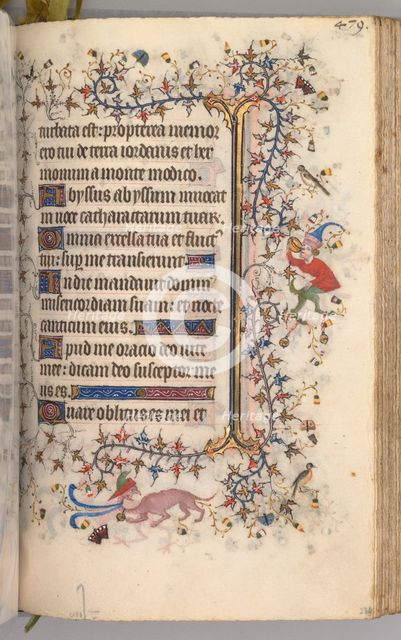 479.
turbata est: propterea memor
ero tui de terra iordanis et her
monium a monte modico.
Abyssus abyssum inuocat
in uoce catharactarum tuar.
Omnia excelsa tua et fluct
tui: sup me transierunt.
In die mandauit dominus
misericordiam suam: et nocte
canticum eius.
Apud me oratio deo uite
mee: dicam deo susceptor me
us es.
Quare oblitus es mei et
Heritage
Heritage
Heritage
Heritage